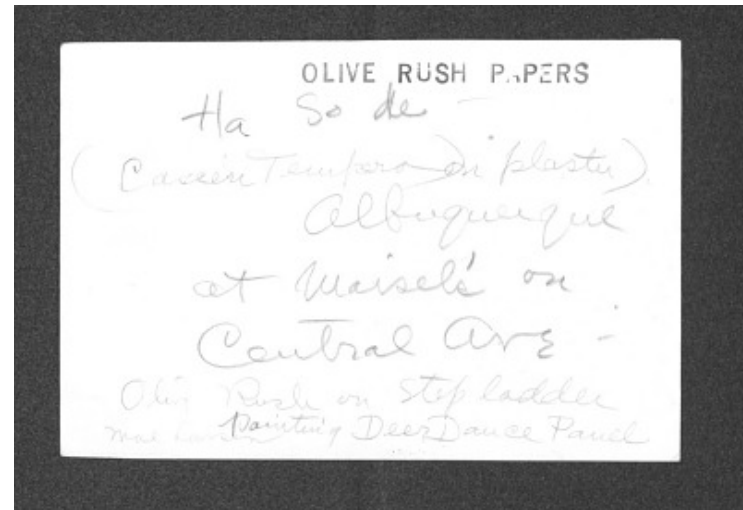 OLIVE RUSH PAPERS
Ha So de -
(Casein Tempera on plaster)
Albuquerque
at Maisel's on
Central Ave -
Olive Rush on Stepladder
Painting Deer Dance Panel